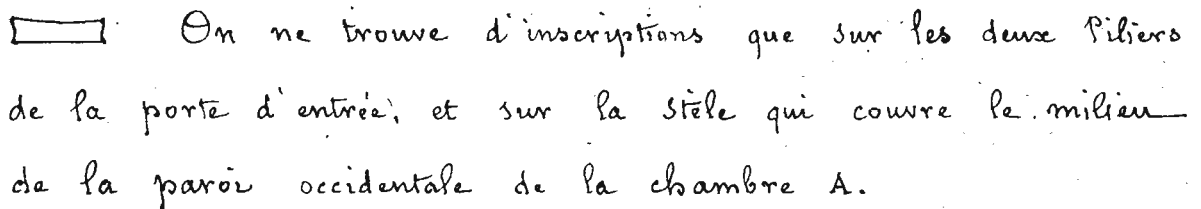 On ne trouve d'inscriptions que sur les deux Piliers
de la porte d'entrée, et sur la stèle qui couvre le milieu
de la paroi occidentale de la chambre A.